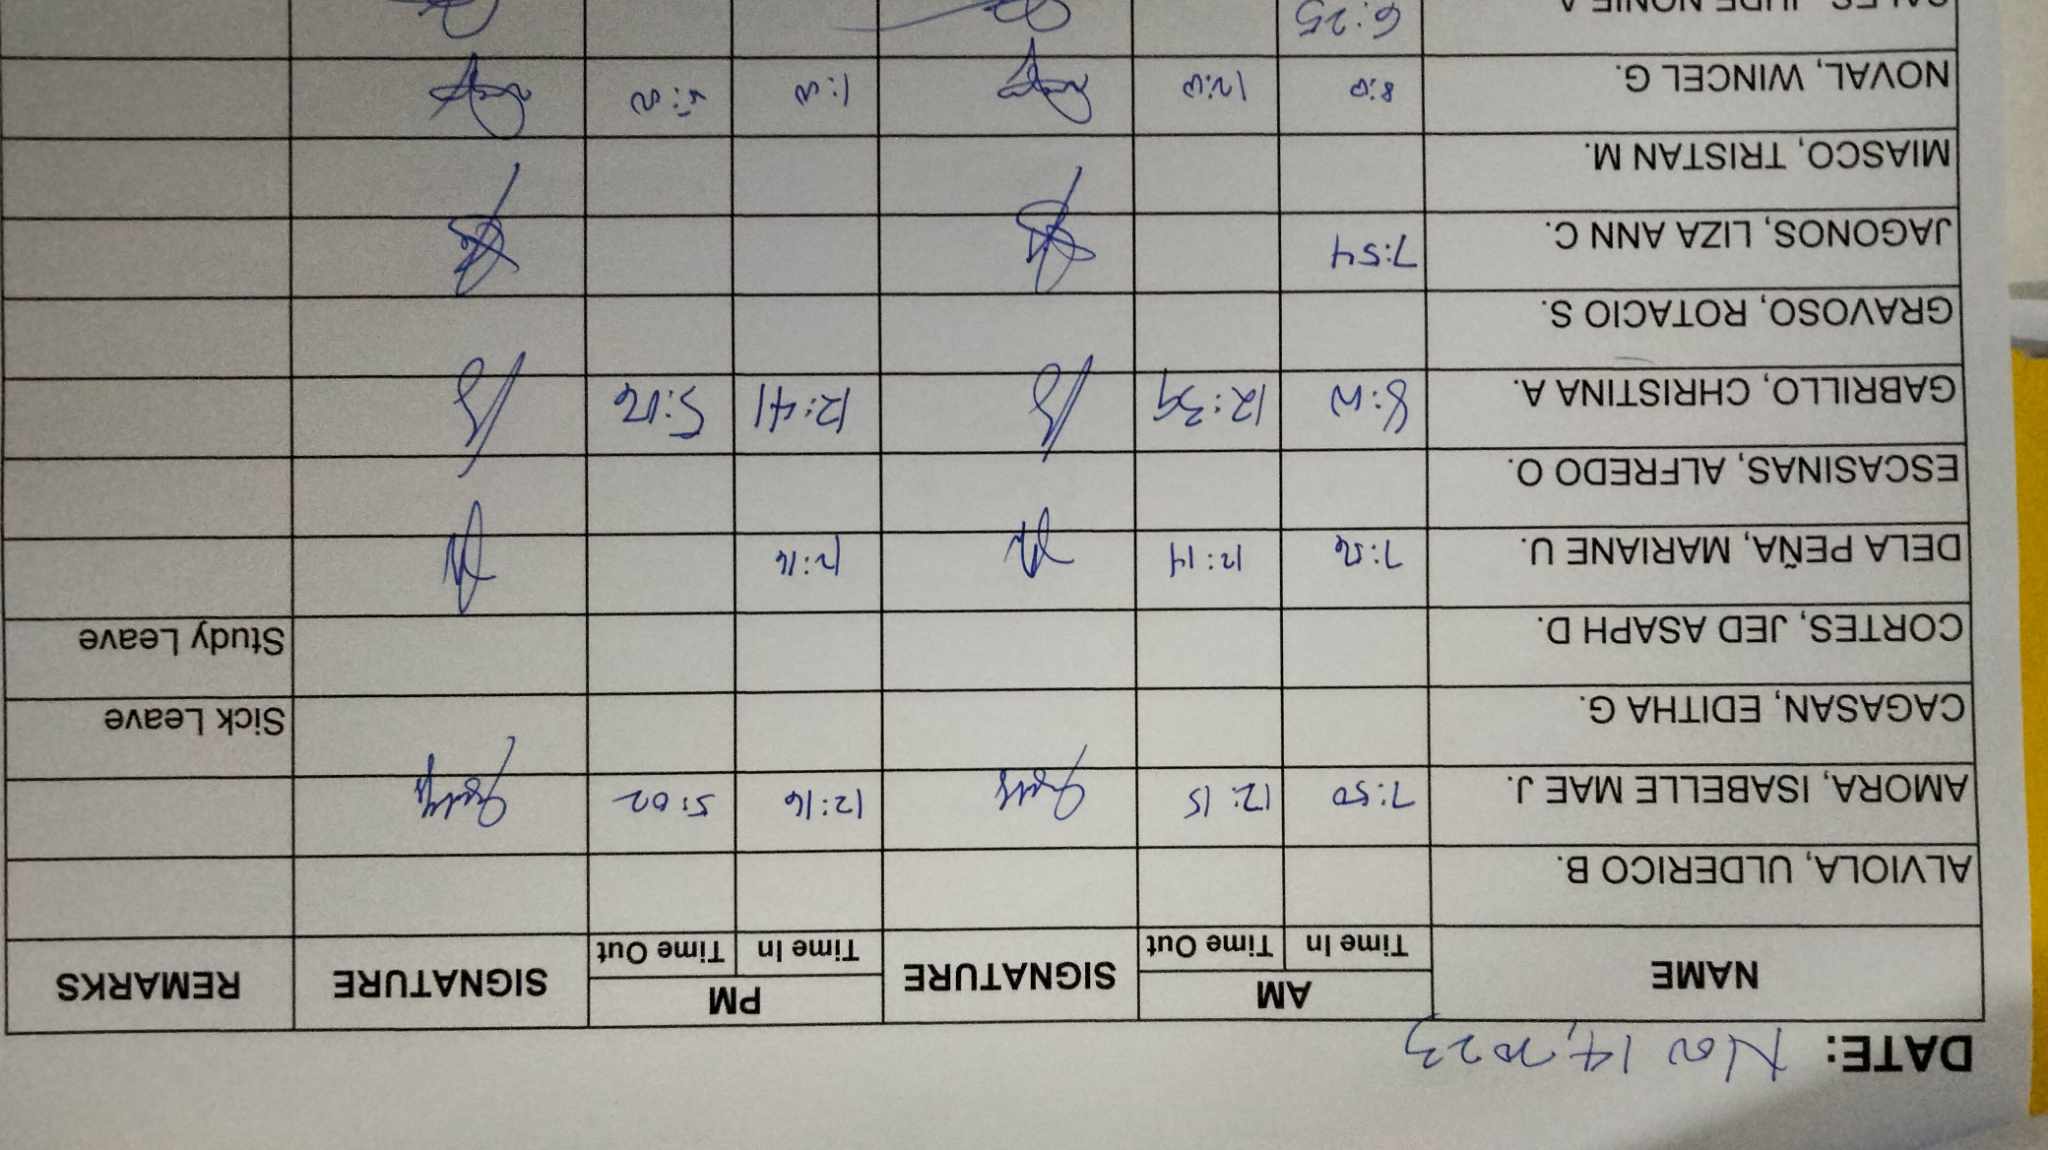 DATE: Nov 14, 2023
NAME AM SIGNATURE PM SIGNATURE REMARKS
Time In Time Out Time In Time Out
ALVIOLA, ULDERICO B.
AMORA, ISABELLE MAE J. 7:50 12:15 12:16 5:02
CAGASAN, EDITHA G. Sick Leave
CORTES, JED ASAPH D. Study Leave
DELA PEÑA, MARIANE U. 7:56 12:14 12:16
ESCASINAS, ALFREDO O.
GABRILLO, CHRISTINA A. 8:00 12:39 12:41 5:06
GRAVOSO, ROTACIO S.
JAGONOS, LIZA ANN C. 7:54
MIASCO, TRISTAN M.
NOVAL, WINCEL G. 8:00 12:00 1:00
JUDE NONIE A. 6:25